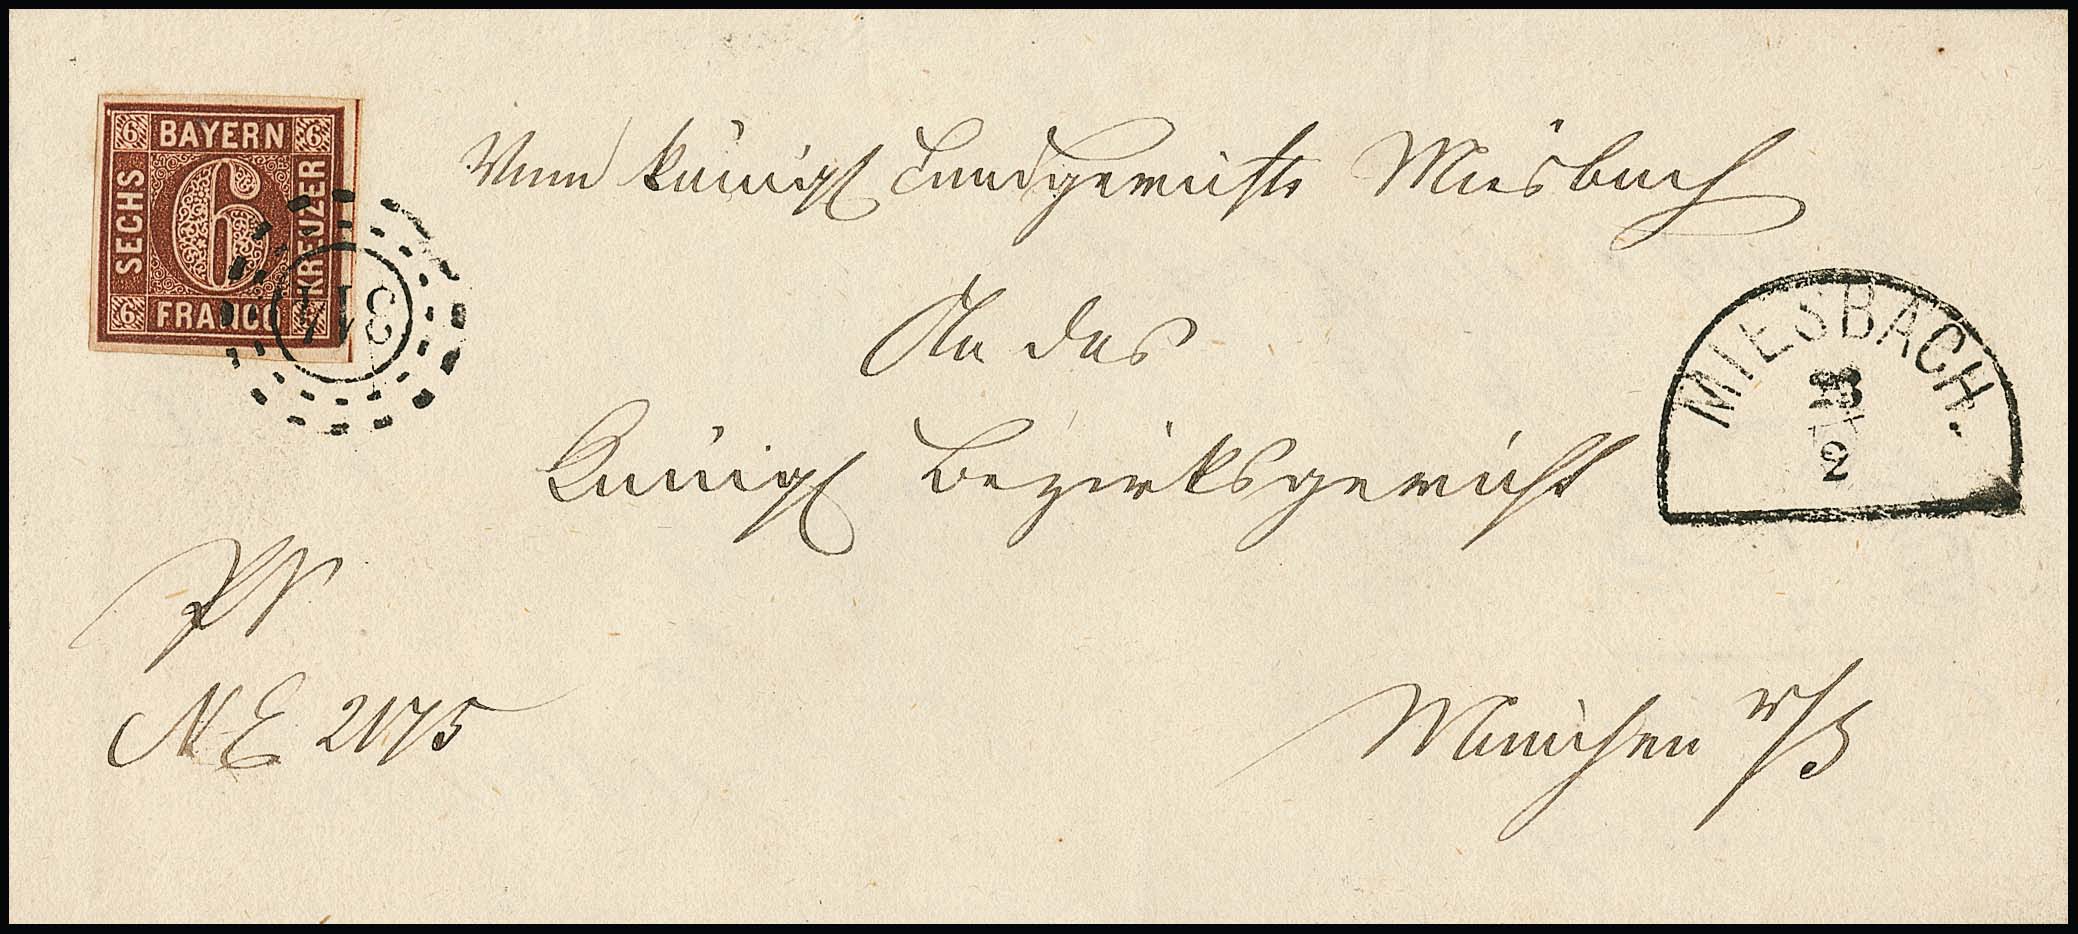 6 BAYERN 6
SECHS 6 KREUZER
6 FRANCO
Vom königl Landgerichte Miesbach
An das
MIESBACH.
2
Königl Bezirksgericht
PS
N E 2175
München r/I